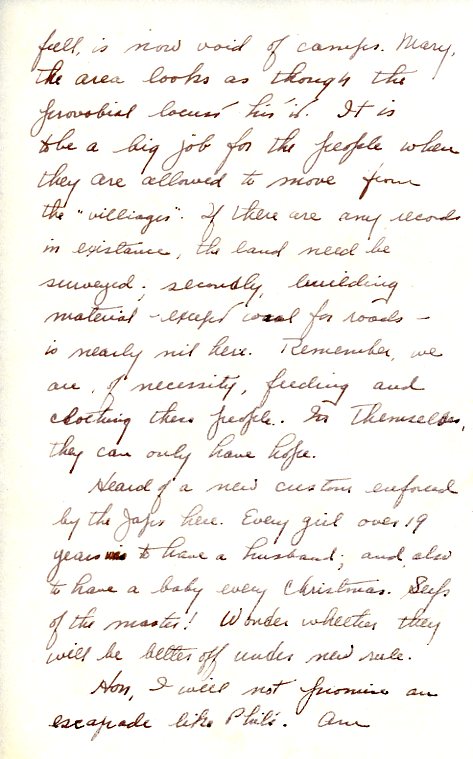 full, is now void of camps. Mary,
the area looks as though the
provobial locust his it. It is
to be a big job for the people when
they are allowed to move from
the "villiages". If there are any records
in existance, the land need be
surveyed; secondly, building
material - except coral for roads -
is nearly nil here. Remember, we
are, of necessity, feeding and
clothing these people. For themselves,
they can only have hope.
Heard of a new custom enforced
by the Japs here. Every girl over 19
years is to have a husband; and also
to have a baby every Christmas.
of the master! Wonder whether they
will be better off under new rule.
Hon, I will not promise an
escapade like Phil's. Am